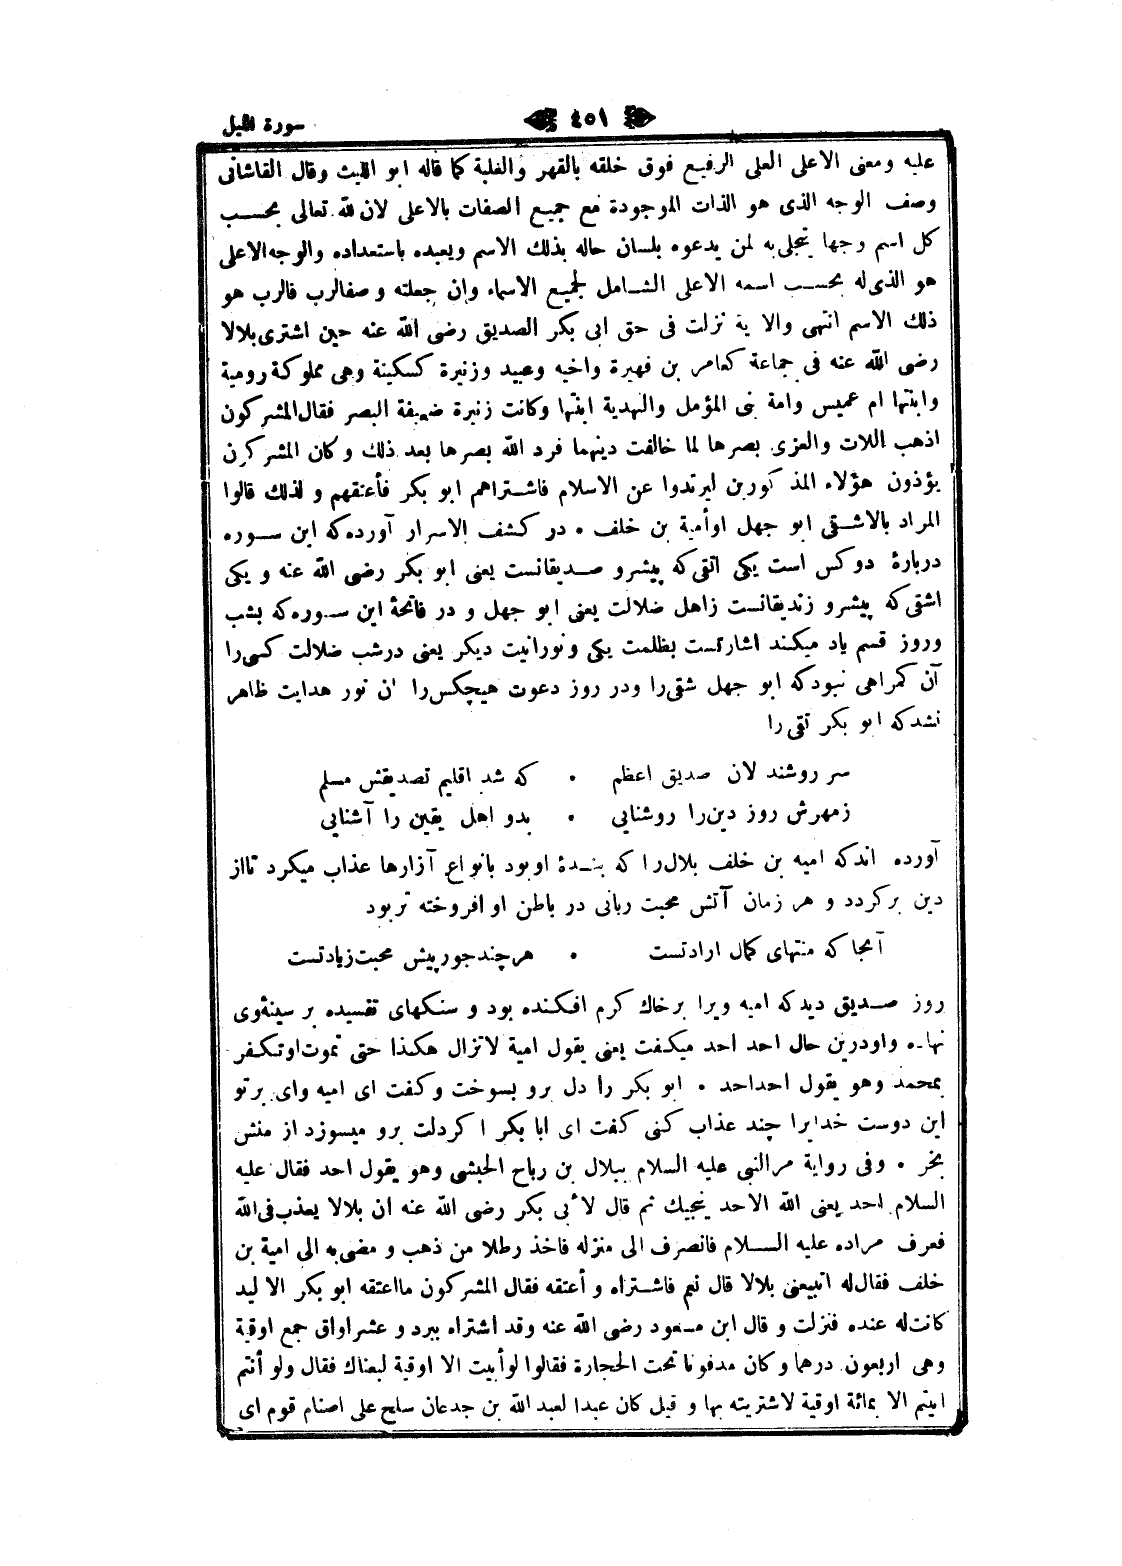 سورة الليل
٤٥١
عليه ومعنى الاعلى العلى الرفيع فوق خلقه بالقهر والغلبة كما قاله ابو الليث وقال القاشانى
وصف الوجه الذى هو الذات الموجودة مع جميع الصفات بالاعلى لان لله تعالى بحسب
كل اسم وجها يتجلى به لمن يدعوه بلسان حاله بذلك الاسم ويعبده باستعداده والوجه الاعلى
هو الذى له بحسب اسمه الاعلى الشامل لجميع الاسماء وان جعلته وصفا لرب فالرب هو
ذلك الاسم انتهى والآية نزلت فى حق ابى بكر الصديق رضى الله عنه حين اشترى بلالا
رضى الله عنه فى جماعة كعامر بن فهيرة واخيه وعبيد وزنيرة كسكينة وهى مملوكة رومية
وابنتها ام عميس وامة بنى المؤمل والنهدية ابنتها وكانت زنيرة ضعيفة البصر فقال المشركون
اذهب اللات والعزى بصرها لما خالفت دينهما فرد الله بصرها بعد ذلك وكان المشركون
يؤذون هؤلاء المذكورين ليرتدوا عن الاسلام فاشتراهم ابو بكر فأعتقهم ولذلك قالوا
المراد بالاشقى ابو جهل او أمية بن خلف ٠ در كشف الاسرار آورده كه اين سوره
دربارۀ دو كس است يكى اتقى كه پيشرو صديقانست يعنى ابو بكر رضى الله عنه ويكى
اشقى كه پيشرو زنديقانست زاهل ضلالت يعنى ابو جهل و در فاتحۀ اين سوره كه بشب
وروز قسم ياد ميكند اشارتست بظلمت يكى ونورانيت ديكر يعنى درشب ضلالت كسى را
آن كمراهى نبود كه ابو جهل شقى را ودر روز دعوت هيچكس را ان نور هدايت ظاهر
نشد كه ابو بكر تقى را
سر روشند لان صديق اعظم ٠ كه شد اقليم تصديقش مسلم
زمهرش روز دين را روشنايى ٠ بدو اهل يقين را آشنايى
آورده اند كه اميه بن خلف بلال را كه بندۀ او بود بانواع آزارها عذاب ميكرد تا از
دين بركردد و هر زمان آتش محبت ربانى در باطن او افروخته تر بود
آنجا كه منتهاى كمال ارادتست ٠ هرچند جور پيش محبت زيادتست
روز صديق ديد كه اميه ويرا برخاك كرم افكنده بود و سنكهاى تفسيده بر سينۀ وى
نهاده واودرين حال احد احد ميكفت يعنى يقول امية لاتزال هكذا حتى تموت اوتكفر
بمحمد وهو يقول احد احد ٠ ابو بكر را دل برو بسوخت وكفت اى اميه واى بر تو
اين دوست خدايرا چند عذاب كنى كفت اى ابا بكر اكر دلت برو ميسوزد از منش
بخر ٠ وفى رواية مر النبى عليه السلام ببلال بن رباح الحبشى وهو يقول احد فقال عليه
السلام احد يعنى الله الاحد ينجيك ثم قال لأبى بكر رضى الله عنه ان بلالا يعذب فى الله
فعرف مراده عليه السلام فانصرف الى منزله فاخذ رطلا من ذهب ومضى به الى امية بن
خلف فقال له اتبيعنى بلالا قال نعم فاشتراه وأعتقه فقال المشركون مااعتقه ابو بكر الا ليد
كانت له عنده فنزلت وقال ابن مسعود رضى الله عنه وقد اشتراه ببرد وعشراواق جمع اوقية
وهى اربعون درهما وكان مدفونا تحت الحجارة فقالوا لوأبيت الا اوقية لبعناك فقال ولو أنتم
ابيتم الا بمائة اوقية لاشتريته بها و قيل كان عبدا لعبد الله بن جدعان سلح على اصنام قوم اى